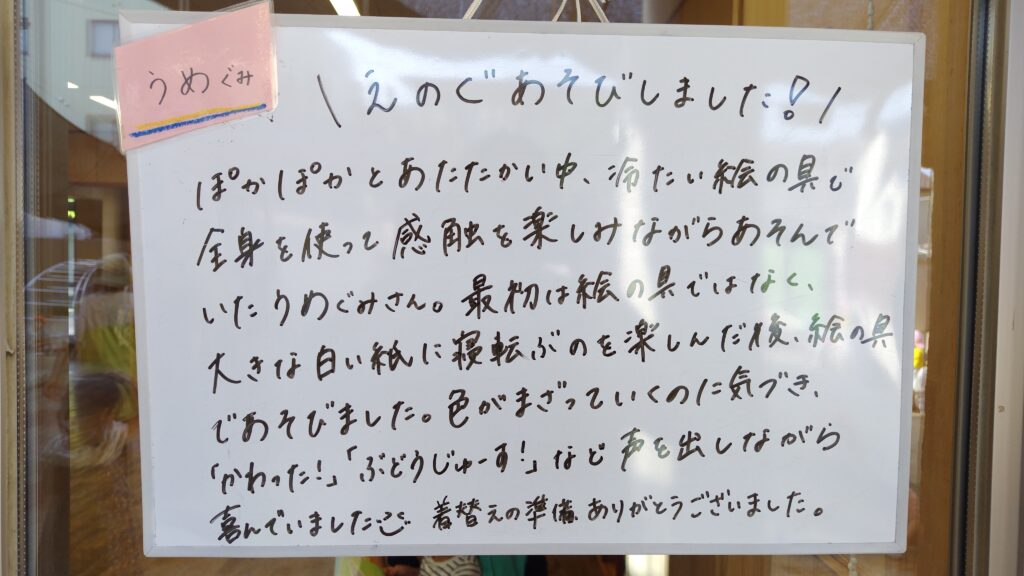 うめぐみ
\ えのぐあそびしました! /
ぽかぽかとあたたかい中、冷たい絵の具で
全身を使って感触を楽しみながらあそんで
いたうめぐみさん。最初は絵の具ではなく、
大きな白い紙に寝転ぶのを楽しんだ後、絵の具
であそびました。色がまざっていくのに気づき、
「かわった!」「ぶどうじゅーす!」など声を出しながら
喜んでいました 着替えの準備、ありがとうございました。